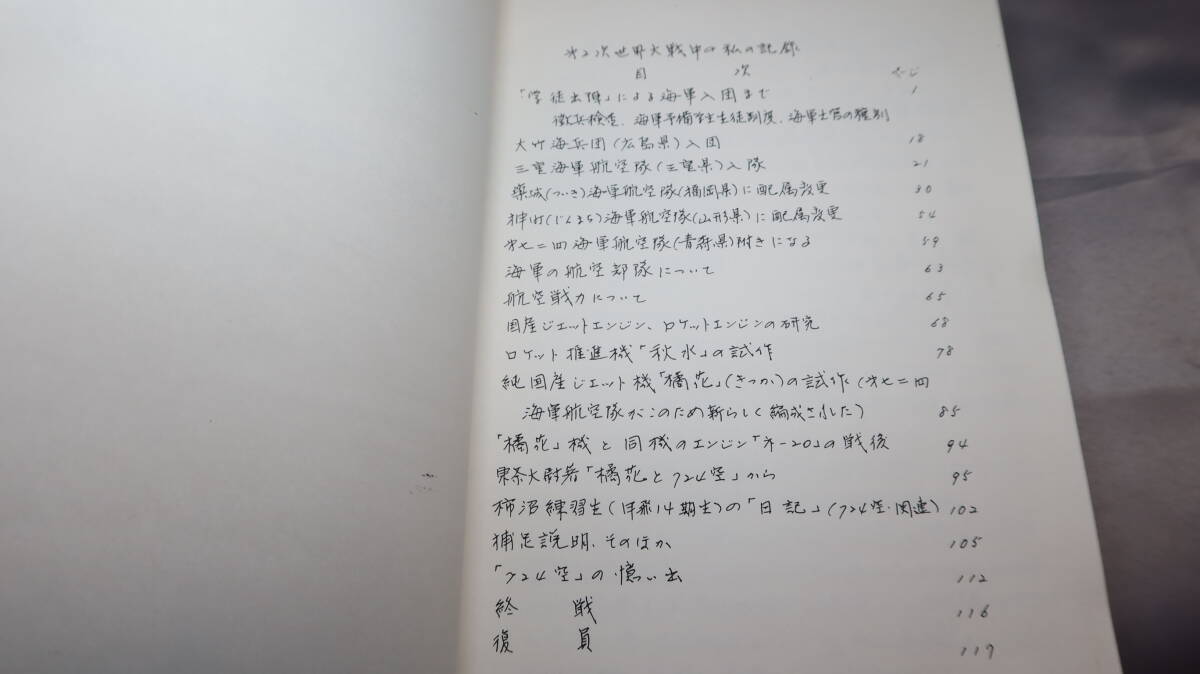 オ2次世界大戦中の私の記録
目 次 ページ
「学徒出陣」による海軍入団まで 1
徴兵検査、海軍予備学生生徒制度、海軍士官の種別
大竹海兵団(広島県)入団 18
三重海軍航空隊(三重県)入隊 21
築城(ついき)海軍航空隊(福岡県)に配属変更 30
神町(じんまち)海軍航空隊(山形県)に配属変更 54
オ七二四海軍航空隊(青森県)附きになる 59
海軍の航空部隊について 63
航空戦力について 65
国産ジェットエンジン、ロケットエンジンの研究 68
ロケット推進機「秋水」の試作 78
純国産ジェット機「橘花」(きっか)の試作(オ七二四
海軍航空隊がこのため新らしく編成された) 85
「橘花」機と同機のエンジン「ネ-20」の戦後 94
大尉著「橘花と724空」から 95
柿沼練習生(甲飛14期生)の「日記」(724空・関連) 102
補足説明、そのほか 105
「724空」の憶い出 112
終 戦 116
復 員 119